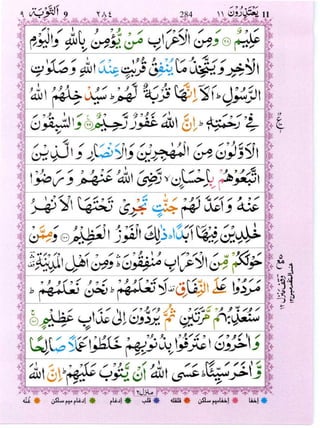 ٩ اَلتَّوْبَة 9 ٢٨٤ 284 يَعْتَذِرُوْنَ ١١ 11
عَلِيْمٌ ﴿٩٨﴾ وَمِنَ الْاَعْرَابِ مَنْ يُّؤْمِنُ بِاللّٰهِ وَالْيَوْمِ
الْاٰخِرِ وَيَتَّخِذُ مَا يُنْفِقُ قُرُبٰتٍ عِنْدَ اللّٰهِ وَصَلَوٰتِ
الرَّسُوْلِ ؕ اَلَاۤ اِنَّهَا قُرْبَةٌ لَّهُمْ ؕ سَيُدْخِلُهُمُ اللّٰهُ
فِيْ رَحْمَتِهٖ ؕ اِنَّ اللّٰهَ غَفُوْرٌ رَّحِيْمٌ ﴿٩٩﴾ وَالسّٰبِقُوْنَ
الْاَوَّلُوْنَ مِنَ الْمُهٰجِرِيْنَ وَالْاَنْصَارِ وَالَّذِيْنَ
اتَّبَعُوْهُمْ بِاِحْسَانٍ ۙ رَّضِيَ اللّٰهُ عَنْهُمْ وَرَضُوْا
عَنْهُ وَاَعَدَّ لَهُمْ جَنّٰتٍ تَجْرِيْ تَحْتَهَا الْاَنْهٰرُ
خٰلِدِيْنَ فِيْهَاۤ اَبَدًا ؕ ذٰلِكَ الْفَوْزُ الْعَظِيْمُ ﴿١٠٠﴾ وَمِمَّنْ
حَوْلَكُمْ مِّنَ الْاَعْرَابِ مُنٰفِقُوْنَ ؕ وَمِنْ اَهْلِ الْمَدِيْنَةِ
مَرَدُوْا عَلَى النِّفَاقِ لَا تَعْلَمُهُمْ ؕ نَحْنُ نَعْلَمُهُمْ ؕ
سَنُعَذِّبُهُمْ مَّرَّتَيْنِ ثُمَّ يُرَدُّوْنَ اِلٰى عَذَابٍ عَظِيْمٍ ﴿١٠١﴾
وَاٰخَرُوْنَ اعْتَرَفُوْا بِذُنُوْبِهِمْ خَلَطُوْا عَمَلًا صَالِحًا
وَّاٰخَرَ سَيِّئًا ؕ عَسَى اللّٰهُ اَنْ يَّتُوْبَ عَلَيْهِمْ ؕ اِنَّ اللّٰهَ
منزل ٢
اخفا اخفا میم ساکن قلقلہ قلب ادغام ادغام میم ساکن غنہ